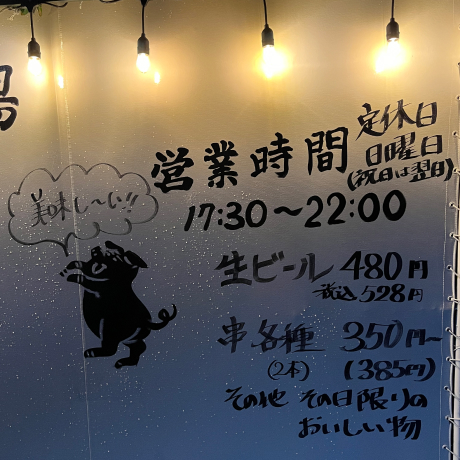 場
営業時間
定休日
日曜日
(祝日は翌日)
17:30〜22:00
美味し〜い!!
生ビール 480円
税込528円
串各種 350円〜
(2本) (385円)
その他 その日限りの
おいしい物